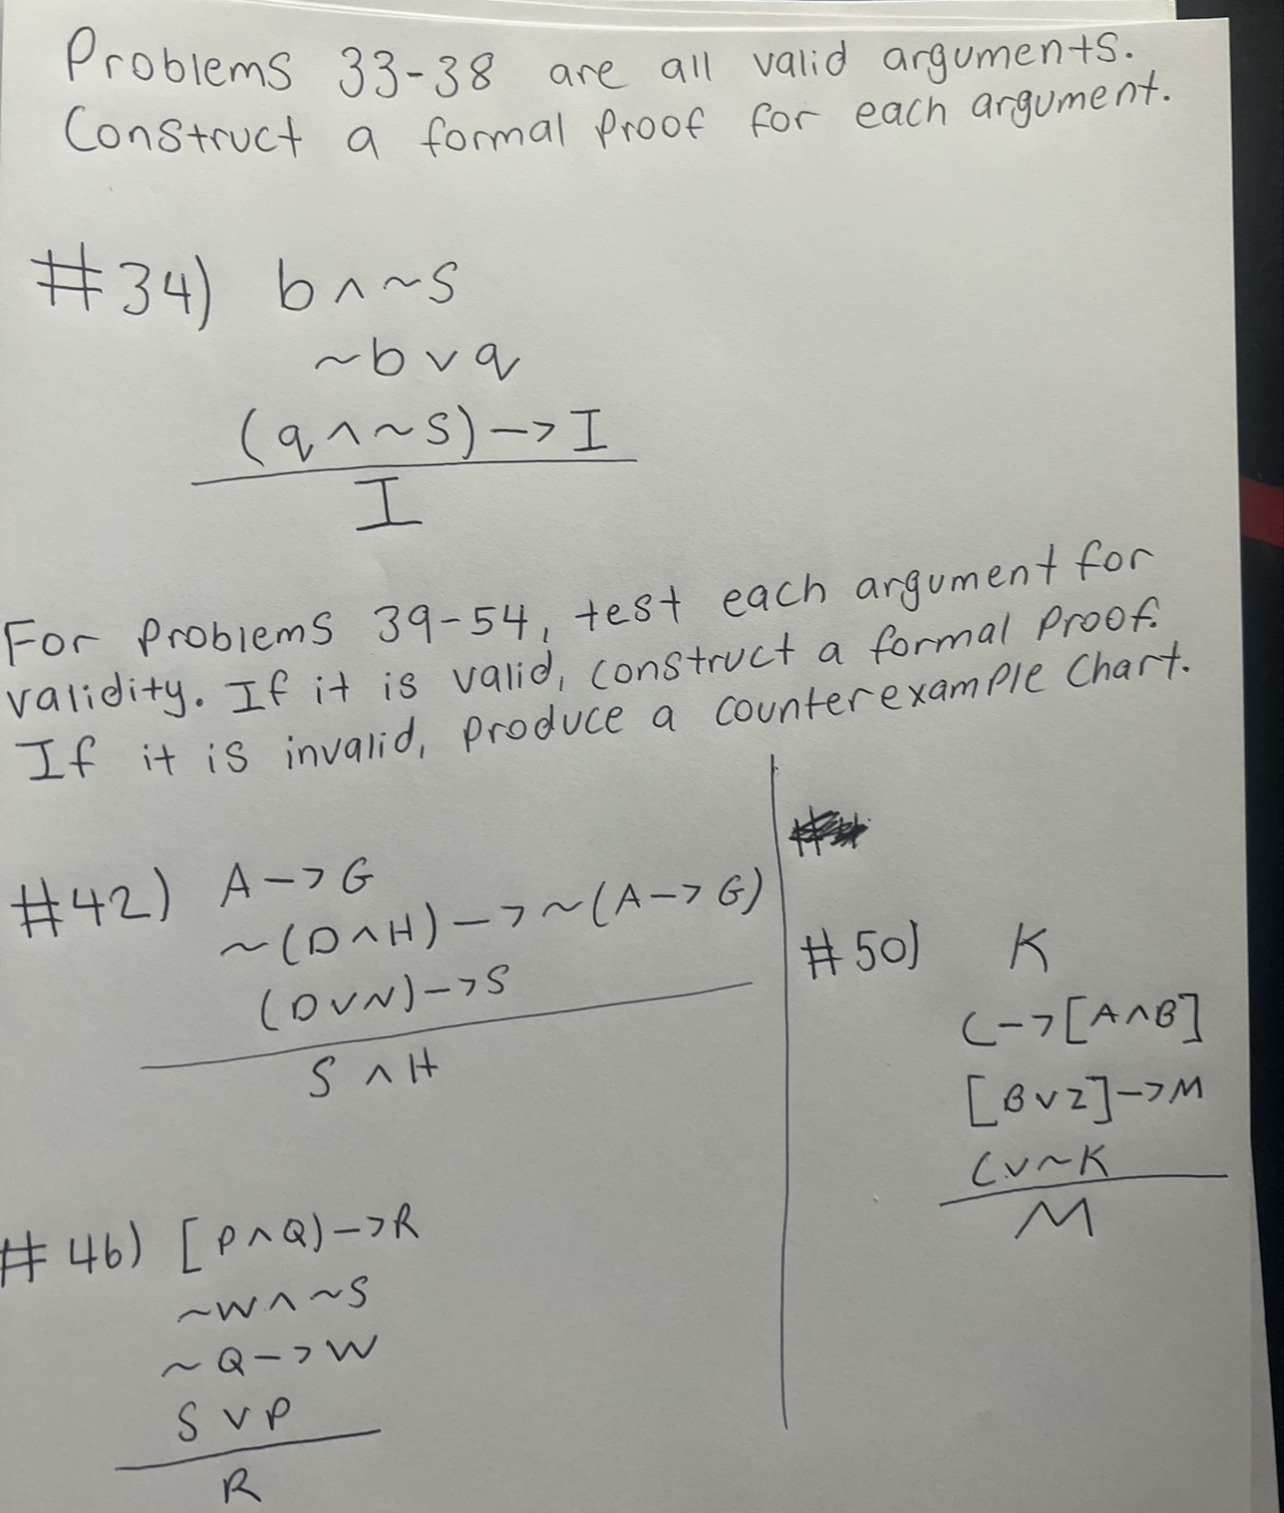 Problems 33-38 are all valid arguments.
Construct a formal proof for each argument.
#34) b∧~S
~b∨q
(q∧~S)->I
I
For problems 39-54, test each argument for
validity. If it is valid, construct a formal proof.
If it is invalid, produce a counterexample chart.
#42) A->G
~(D∧H)->~(A->G)
(D∨N)->S
S∧H
#46) [P∧Q)->R
~W∧~S
~Q->W
S∨P
R
#50) K
C->[A∧B]
[B∨Z]->M
C∨~K
M